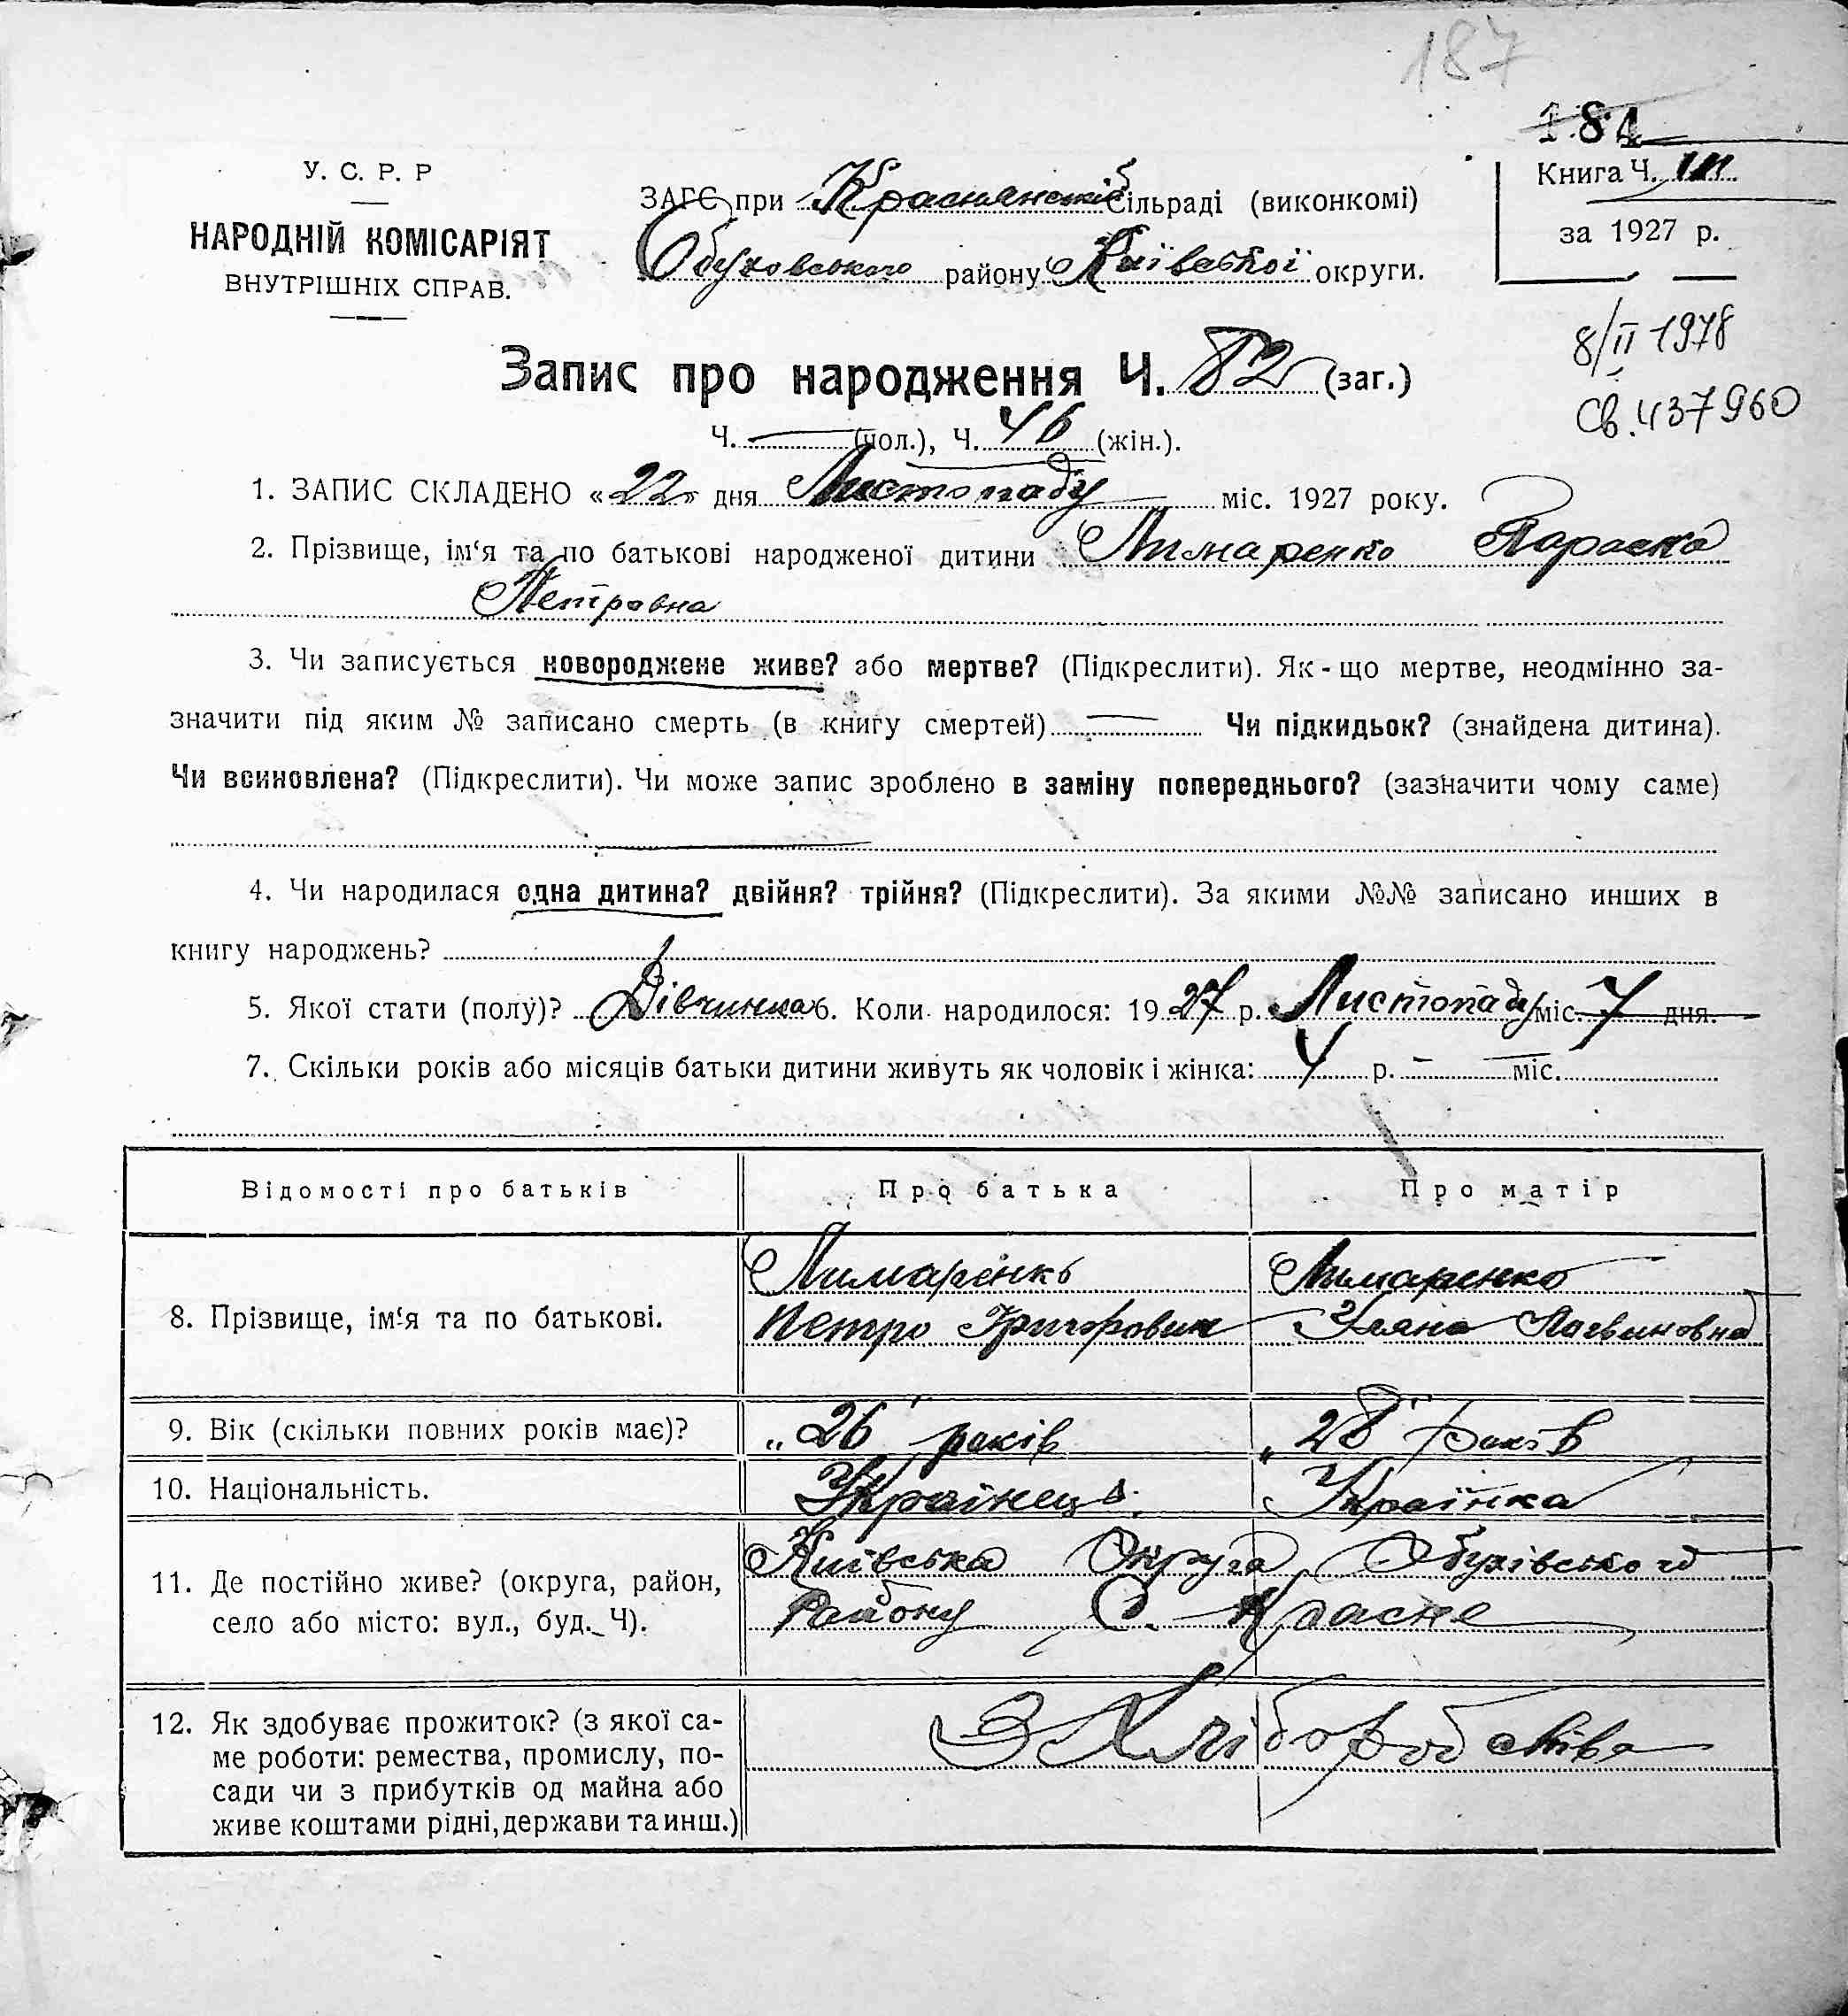 187
184
У. С. Р. Р
НАРОДНІЙ КОМІСАРІЯТ
ВНУТРІШНІХ СПРАВ.
ЗАГС при Краснянській Сільраді (виконкомі)
Обуховського району Київської округи.
Книга Ч. III
за 1927 р.
8/II 1978
Св. 437960
Запис про народження Ч. 82 (заг.)
Ч. — (чол.), Ч. 46 (жін.).
1. ЗАПИС СКЛАДЕНО «22» дня Листопаду міс. 1927 року.
2. Прізвище, ім‘я та по батькові народженої дитини Лимаренко Параска
Петровна
3. Чи записується новороджене живе? або мертве? (Підкреслити). Як-що мертве, неодмінно за-
значити під яким № записано смерть (в книгу смертей) — Чи підкидьок? (знайдена дитина).
Чи всиновлена? (Підкреслити). Чи може запис зроблено в заміну попереднього? (зазначити чому саме)
4. Чи народилася одна дитина? двійня? трійня? (Підкреслити). За якими №№ записано инших в
книгу народжень?
5. Якої стати (полу)? Дівчинка 6. Коли народилося: 1927 р. Листопаду міс. 7 дня.
7. Скільки років або місяців батьки дитини живуть як чоловік і жінка: 4 р. — міс.
Відомості про батьків Про батька Про матір
8. Прізвище, ім‘я та по батькові.
Лимаренко
Петро Григорович
Лимаренко
Уляна Логвиновна
9. Вік (скільки повних років має)? „26" років „28" років
10. Національність. Українець Українка
11. Де постійно живе? (округа, район,
село або місто: вул., буд. Ч).
Київська Округа Обухівського
Району С. Красне
12. Як здобуває прожиток? (з якої са-
ме роботи: ремества, промислу, по-
сади чи з прибутків од майна або
живе коштами рідні, держави та инш.)
З Хліборобства